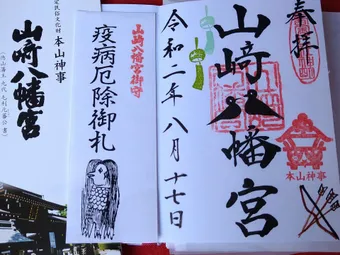 奉拝
山﨑八幡宮
本山神事
令和二年八月十七日
山﨑八幡宮御守
疫病厄除御札
本山神事
山﨑八幡宮